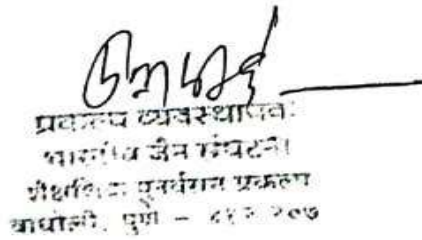 प्रकल्प व्यवस्थापक
भारतीय जैन संघटना
शैक्षणिक पुनर्वसन प्रकल्प
वाघोली, पुणे - ४१२ २०७